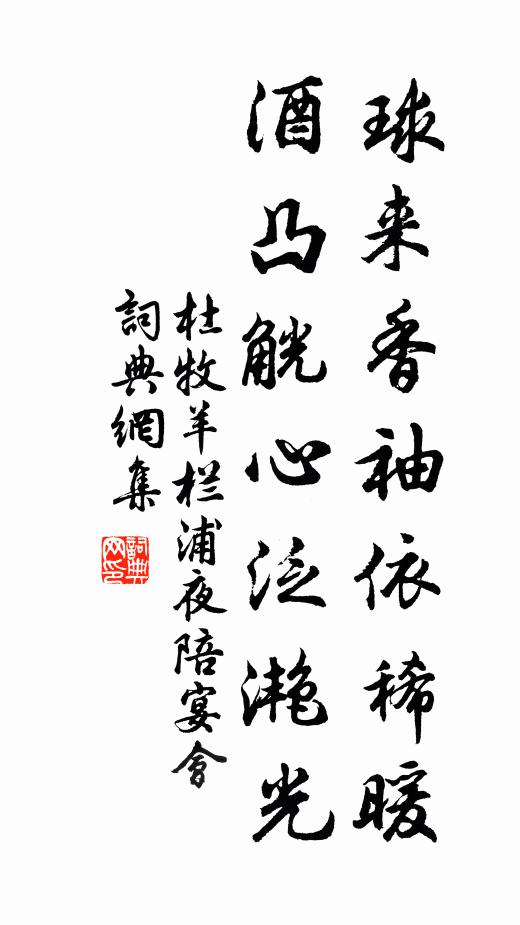 球来香袖依稀暖
酒凸觥心泛滟光
杜牧羊栏浦夜陪宴會
詞典網集
詞典网印